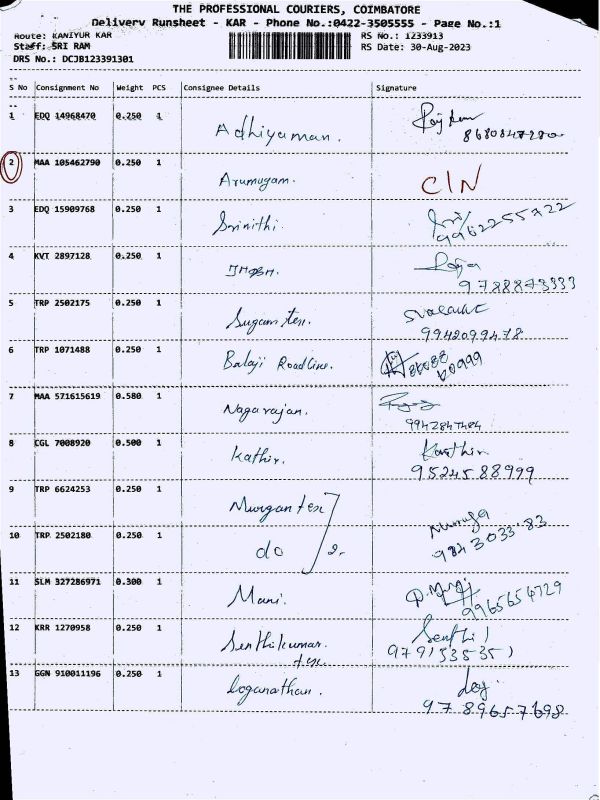 THE PROFESSIONAL COURIERS, COIMBATORE
Delivery Runsheet - KAR - Phone No.:0422-3505555 - Page No.:1
Route: KANIYUR KAR
RS No.: 1233913
Staff: SRI RAM
RS Date: 30-Aug-2023
DRS No.: DCJB123391301
S No Consignment No Weight PCS Consignee Details Signature
1 EDQ 14968470 0.250 1 Adhiyaman.
2 MAA 105462790 0.250 1 Arumugam. C/N
3 EDQ 15909768 0.250 1 Srinithi.
9962255722
4 KVT 2897128 0.250 1 Raja
9788873333
5 TRP 2502175 0.250 1 Sugam tex.
9942099478
6 TRP 1071488 0.250 1 Balaji Roadline.
7 MAA 571615619 0.580 1 Nagarajan.
8 CGL 7008920 0.500 1 Kathir. Karthir
9524588999
9 TRP 6624253 0.250 1 Murgan tex
10 TRP 2502180 0.250 1 do 2-
984303383
11 SLM 327286971 0.300 1 Mani.
9965654729
12 KRR 1270958 0.250 1 Senthikumar Senthil
tex. 9791535351
13 GGN 910011196 0.250 1 Loganathan. Log
9789657698